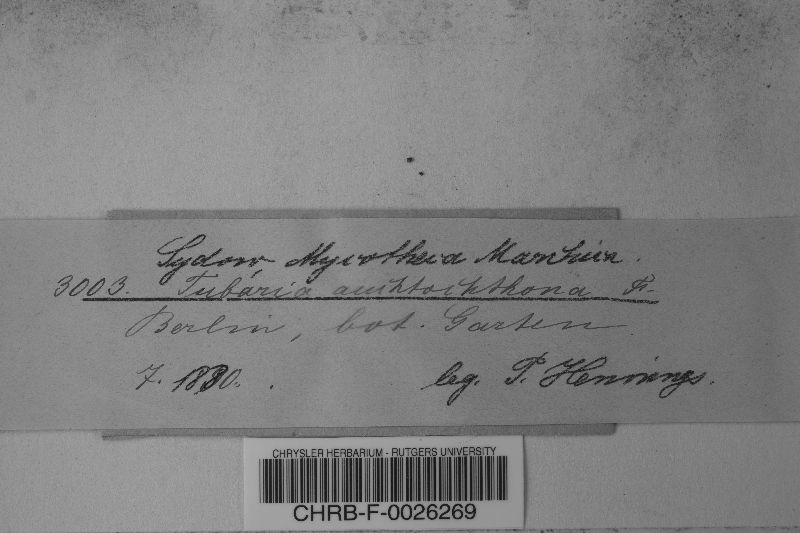 Sydow Mycotheca Marchica.
3003. Tubaria autochthona Fr.
Berlin, bot. Garten
7. 1890. leg. P. Hennings.
CHRYSLER HERBARIUM - RUTGERS UNIVERSITY
CHRB-F-0026269